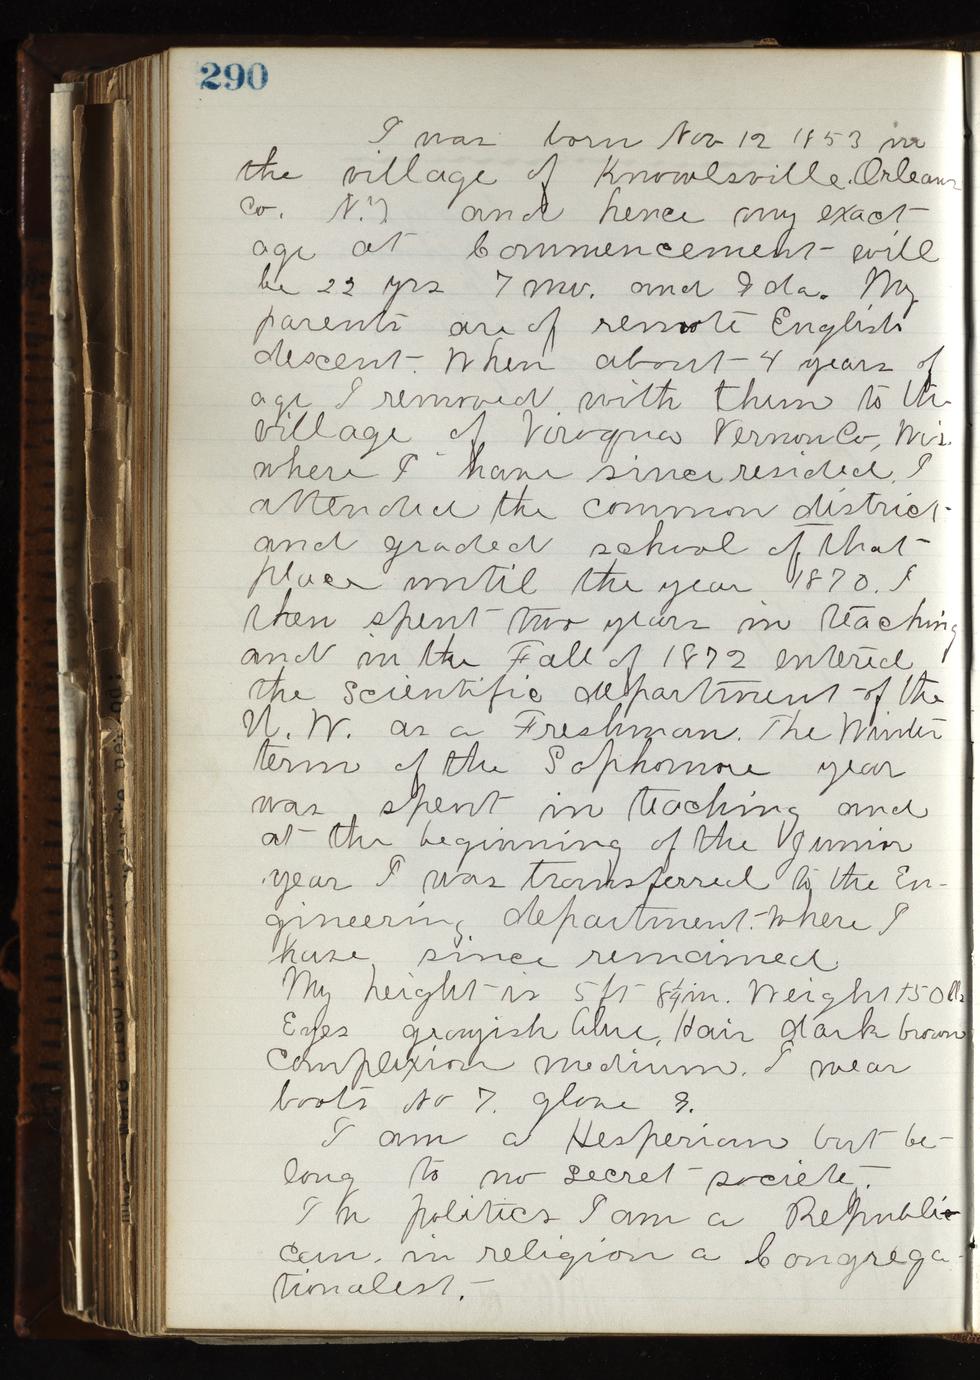 290
I was born Nov 12 1853 in
the village of Knowlsville. Orleans
Co. N.Y and hence my exact
age at Commencement will
be 22 yrs 7 mo. and 9 da. My
parents are of remote English
descent. When about 4 years of
age I removed with them to the
village of Viroqua Vernon Co, Wis.
where I have since resided. I
attended the common district
and graded school of that
place until the year 1870. I
then spent two years in teaching
and in the Fall of 1872 entered
the scientific department of the
U. W. as a Freshman. The Winter
term of the Sophomore year
was spent in teaching and
at the beginning of the Junior
year I was transferred to the En-
gineering department. Where I
have since remained
My height is 5 ft 8¼ in. Weight 150 lbs
Eyes grayish blue, Hair dark brown
Complexion medium. I wear
boots No 7. glove 8.
I am a Hesperian but be-
long to no secret society.
In politics I am a Republi-
can. in religion a Congrega-
tionalist.